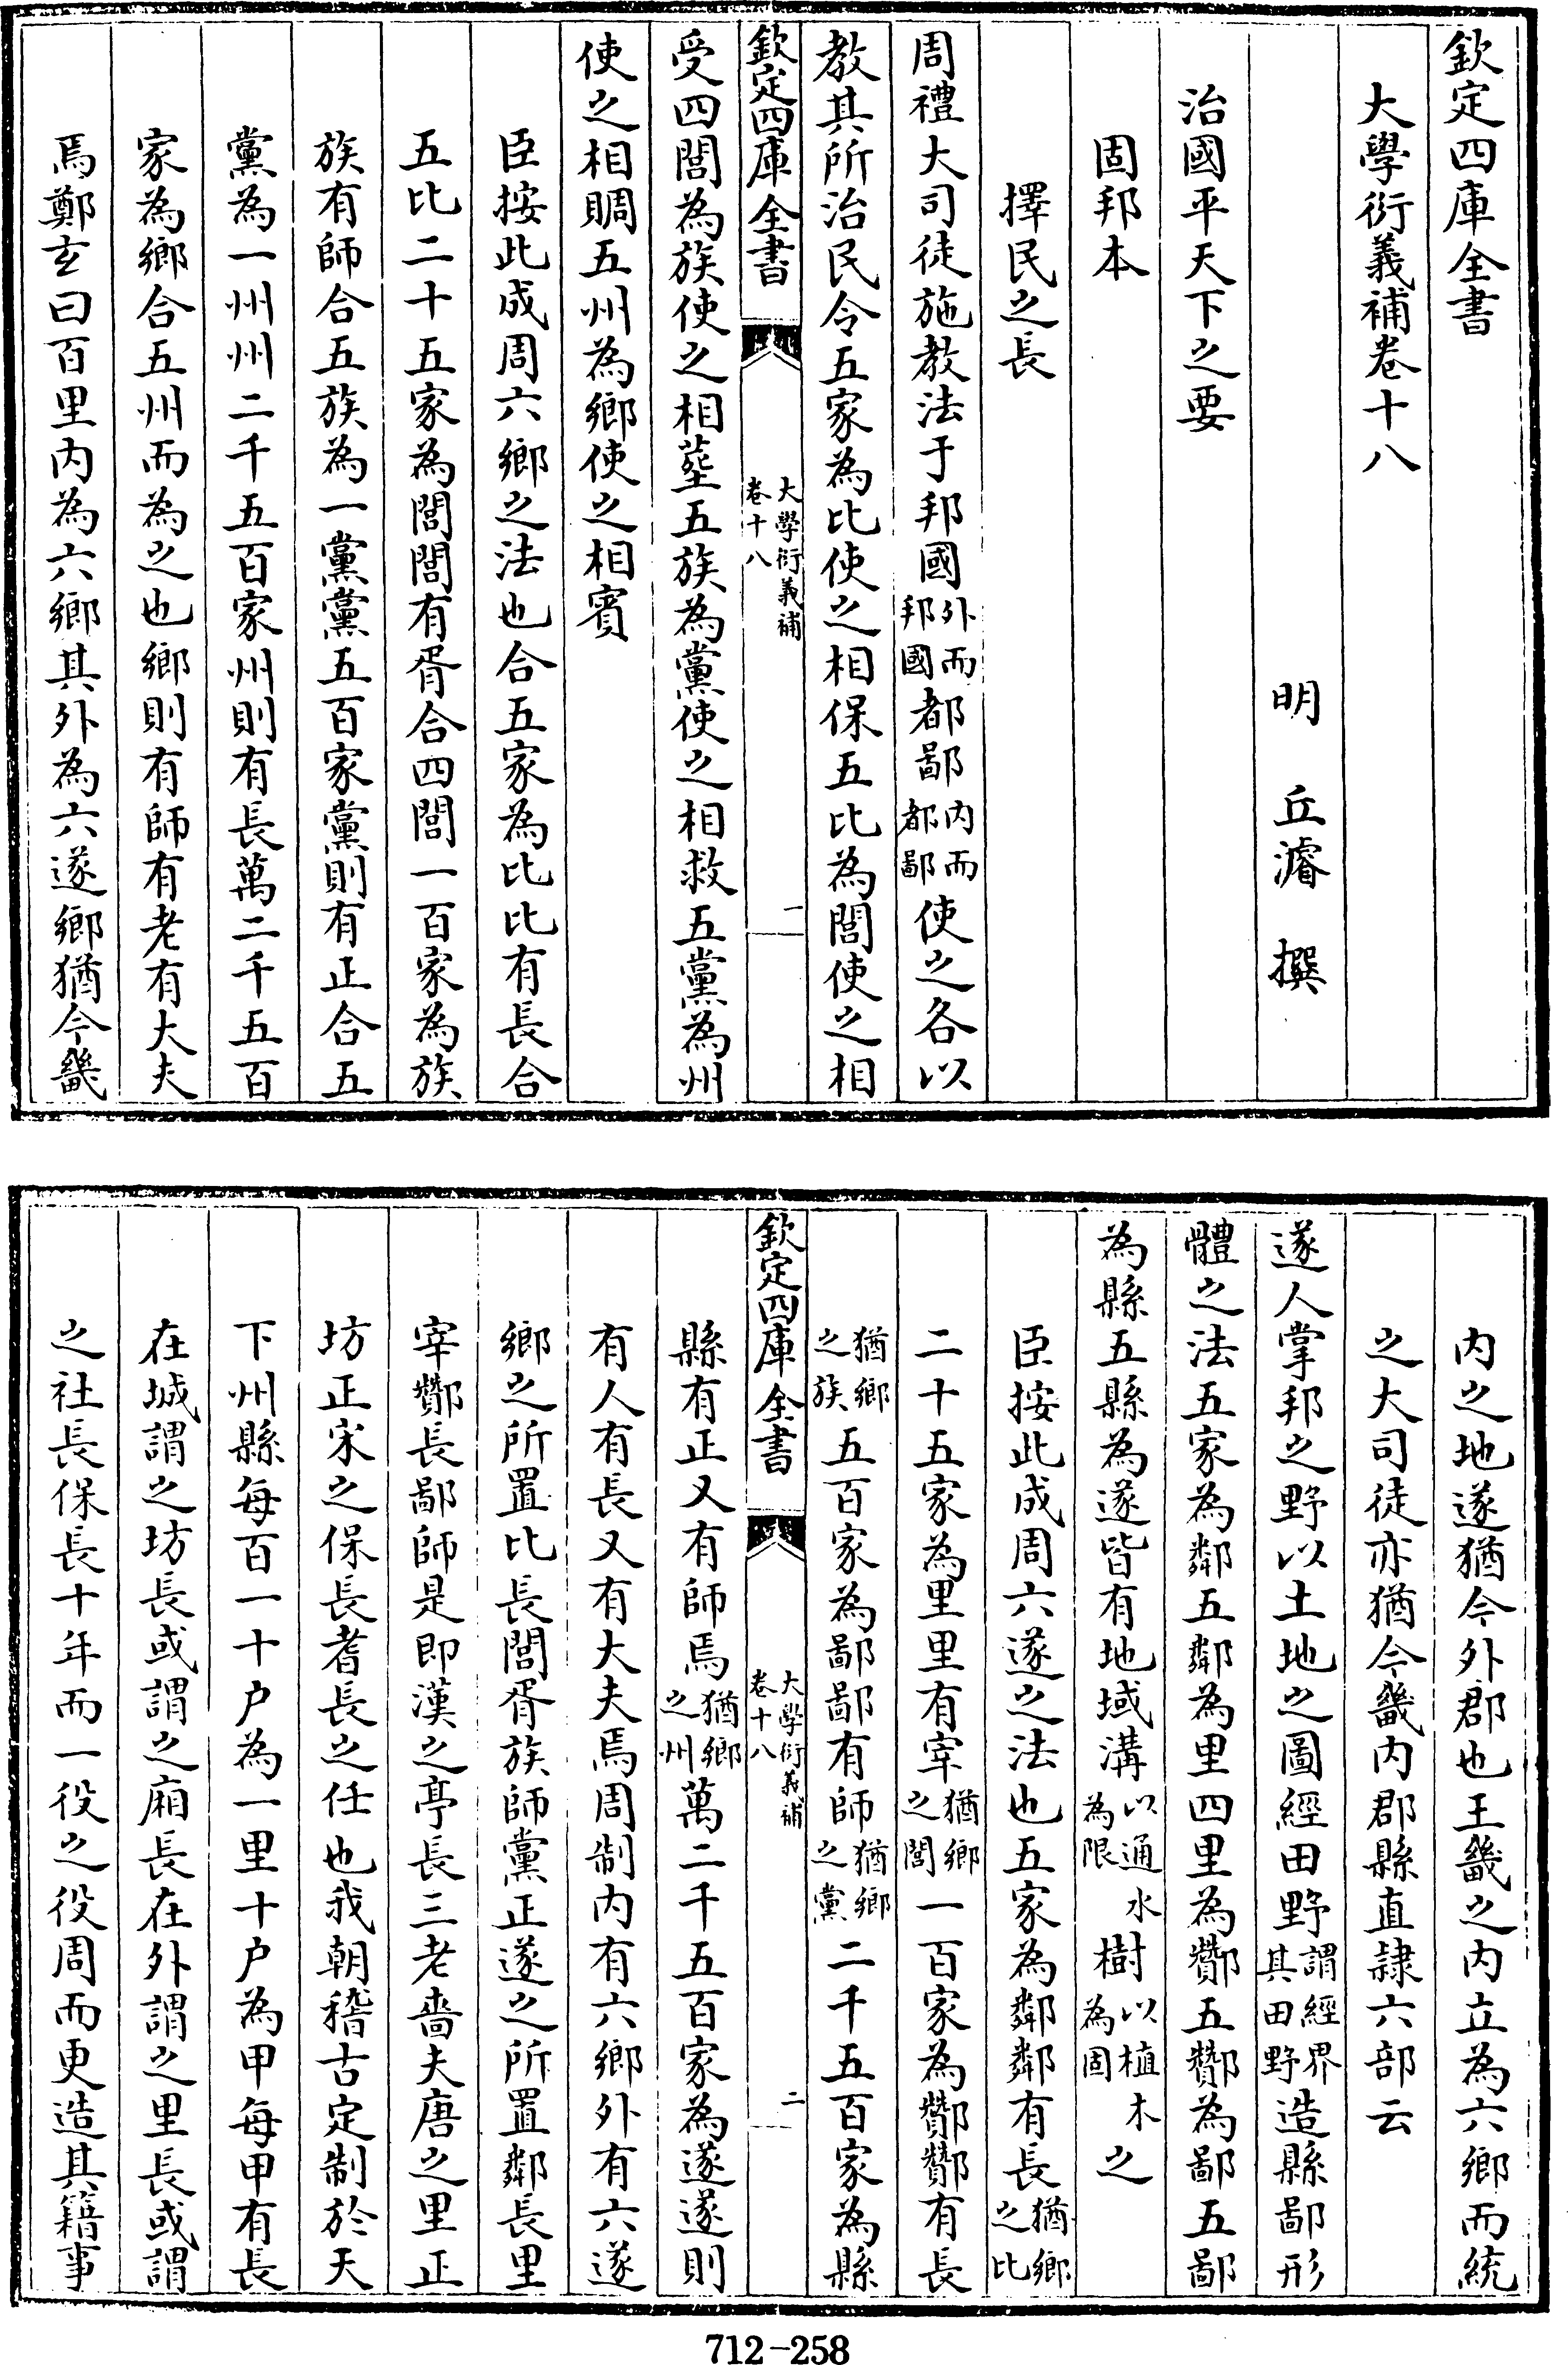 欽定四庫全書
大學衍義補卷十八
明 丘濬 撰
治國平天下之要
固邦本
擇民之長
周禮大司徒施教法于邦國外而邦國都鄙內而都鄙使之各以
教其所治民令五家為比使之相保五比為閭使之相
欽定四庫全書 大學衍義補 卷十八 一
受四閭為族使之相塟五族為黨使之相救五黨為州
使之相賙五州為鄉使之相賓
臣按此成周六鄉之法也合五家為比比有長合
五比二十五家為閭閭有胥合四閭一百家為族
族有師合五族為一黨黨五百家黨則有正合五
黨為一州州二千五百家州則有長萬二千五百
家為鄉合五州而為之也鄉則有師有老有大夫
焉鄭玄曰百里内為六鄉其外為六遂鄉猶今畿
内之地遂猶今外郡也王畿之内立為六鄉而統
之大司徒亦猶今畿内郡縣直隷六部云
遂人掌邦之野以土地之圖經田野謂經界其田野造縣鄙形
體之法五家為鄰五鄰為里四里為酇五酇為鄙五鄙
為縣五縣為遂皆有地域溝以通水為限樹以植木為固之
臣按此成周六遂之法也五家為鄰鄰有長猶鄉之比
二十五家為里里有宰猶鄉之閭一百家為酇酇有長
猶鄉之族五百家為鄙鄙有師猶鄉之黨二千五百家為縣
欽定四庫全書 大學衍義補 卷十八 二
縣有正又有師焉猶鄉之州萬二千五百家為遂遂則
有人有長又有大夫焉周制内有六鄉外有六遂
鄉之所置比長閭胥族師黨正遂之所置鄰長里
宰酇長鄙師是即漢之亭長三老嗇夫唐之里正
坊正宋之保長耆長之任也我朝稽古定制於天
下州縣每百一十户為一里十户為甲每甲有長
在城謂之坊長或謂之廂長在外謂之里長或謂
之社長保長十年而一役之役周而更造其籍事
712-258